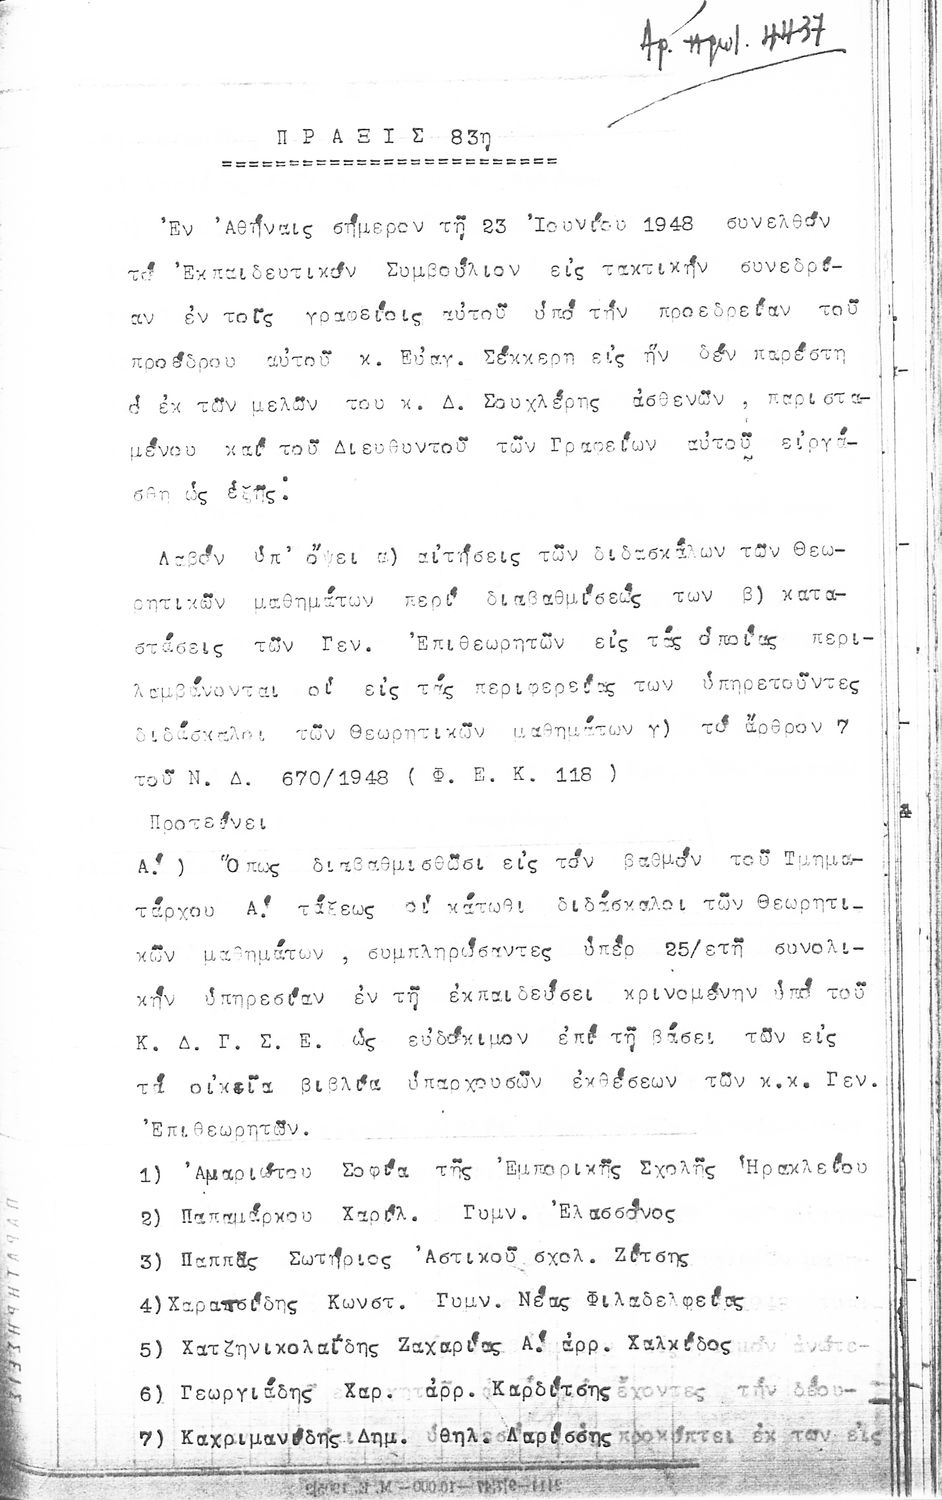 Αρ. πρωτ. 4437
ΠΡΑΞΙΣ 83η
Ἐν Ἀθήναις σήμερον τῇ 23 Ἰουνίου 1948 συνελθόν
τό Ἐκπαιδευτικόν Συμβούλιον εἰς τακτικήν συνεδρί-
αν ἐν τοῖς γραφείοις αὐτοῦ ὑπό τήν προεδρείαν τοῦ
προέδρου αὐτοῦ κ. Εὐαγ. Σέκκερη εἰς ἥν δέν παρέστη
ὁ ἐκ τῶν μελῶν του κ. Δ. Σουχλέρης ἀσθενῶν , παριστα-
μένου καί τοῦ Διευθυντοῦ τῶν Γραφείων αὐτοῦ εἰργά-
σθη ὡς ἑξῆς:
Λαβόν ὑπ' ὄψει α) αἰτήσεις τῶν διδασκάλων τῶν Θεω-
ρητικῶν μαθημάτων περί διαβαθμίσεώς των β) κατα-
στάσεις τῶν Γεν. Ἐπιθεωρητῶν εἰς τάς ὁποίας περι-
λαμβάνονται οἱ εἰς τάς περιφερείας των ὑπηρετοῦντες
διδάσκαλοι τῶν Θεωρητικῶν μαθημάτων γ) τό ἄρθρον 7
τοῦ Ν. Δ. 670/1948 ( Φ. Ε. Κ. 118 )
Προτείνει
Α! ) Ὅπως διαβαθμισθῶσι εἰς τόν βαθμόν τοῦ Τμημα-
τάρχου Α! τάξεως οἱ κάτωθι διδάσκαλοι τῶν Θεωρητι-
κῶν μαθημάτων , συμπληρώσαντες ὑπέρ 25/ετῆ συνολι-
κήν ὑπηρεσίαν ἐν τῇ ἐκπαιδεύσει κρινομένην ὑπό τοῦ
Κ. Δ. Γ. Σ. Ε. ὡς εὐδόκιμον ἐπί τῇ βάσει τῶν εἰς
τά οἰκεῖα βιβλία ὑπαρχουσῶν ἐκθέσεων τῶν κ.κ. Γεν.
Ἐπιθεωρητῶν.
1) Ἀμαριώτου Σοφία τῆς Ἐμπορικῆς Σχολῆς Ἡρακλείου
2) Παπαμάρκου Χαρίλ. Γυμν. Ἐλασσόνος
3) Παππᾶς Σωτήριος Ἀστικοῦ σχολ. Ζίτσης
4) Χαρατσίδης Κωνστ. Γυμν. Νέας Φιλαδελφείας
5) Χατζηνικολαΐδης Ζαχαρίας Α! ἀρρ. Χαλκίδος
6) Γεωργιάδης Χαρ. ἀρρ. Καρδίτσης ἔχοντες τήν δέου-
7) Καχριμανίδης Δημ. θηλ. Λαρίσσης προκύπτει ἐκ των εἰς
ΠΑΡΑΤΗΡΗΣΕΙΣ